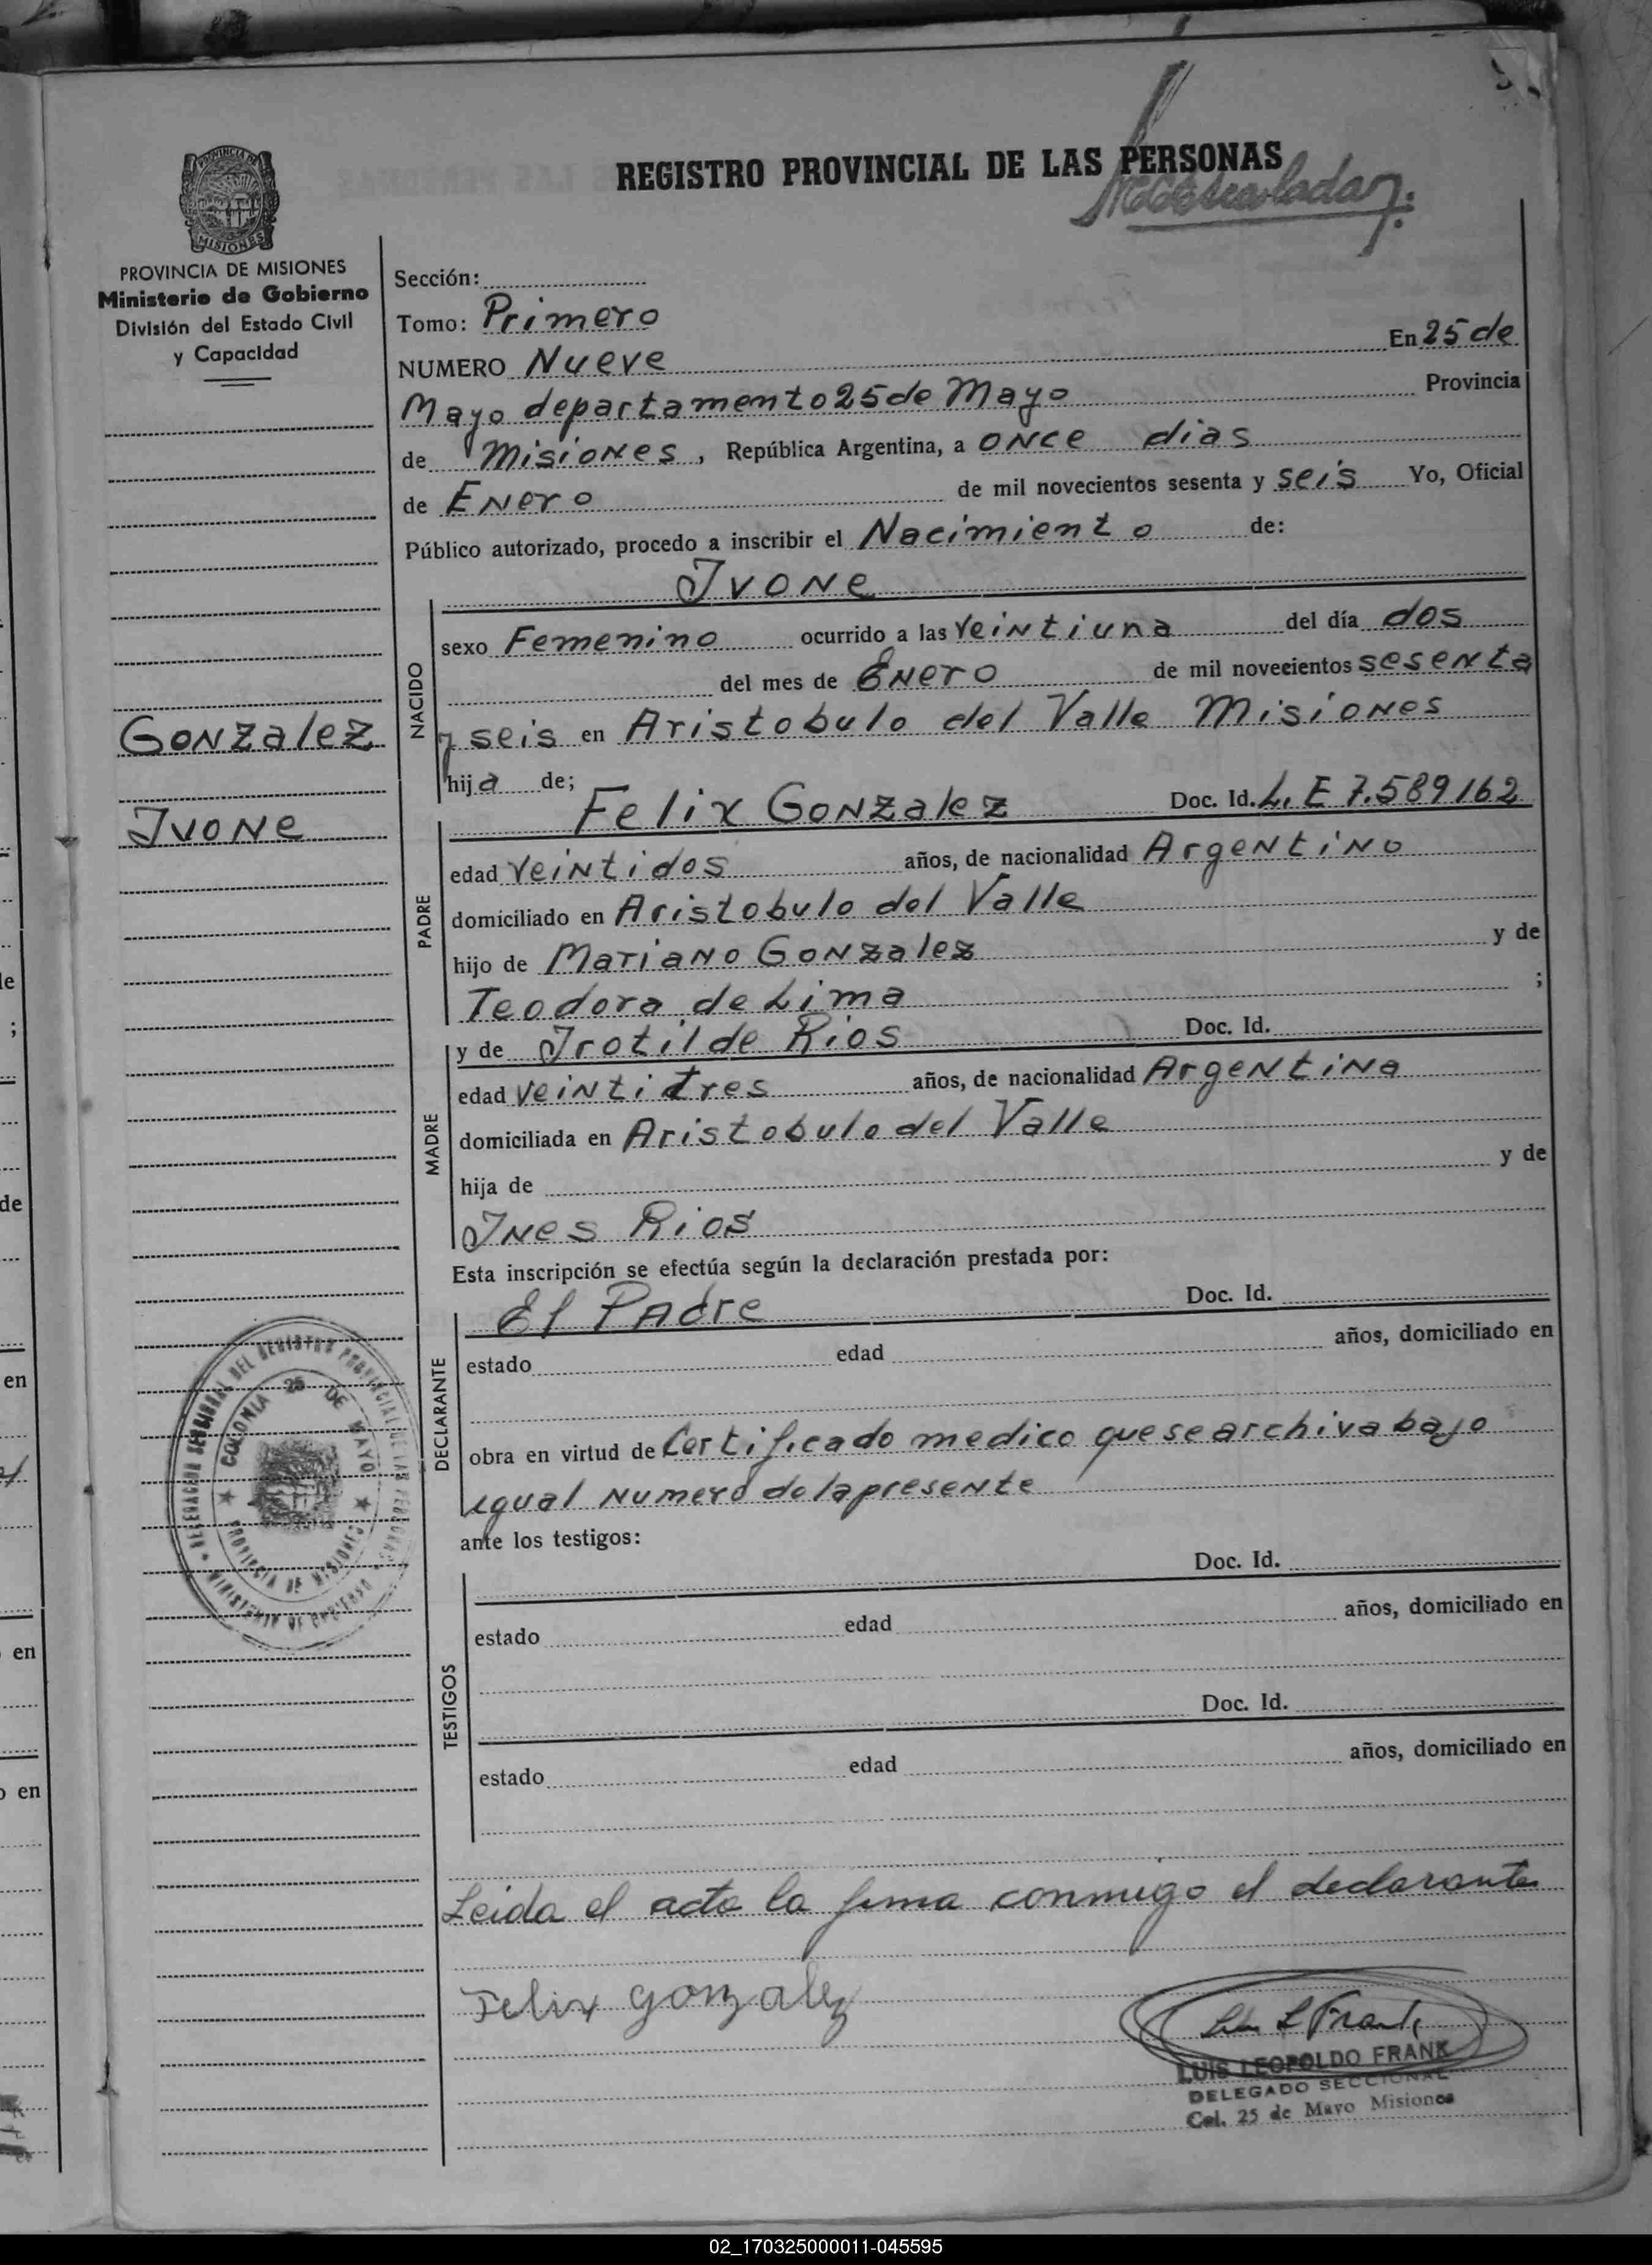 REGISTRO PROVINCIAL DE LAS PERSONAS
PROVINCIA DE
MISIONES
PROVINCIA DE MISIONES
Ministerio de Gobierno
División del Estado Civil
y Capacidad
Sección:
Tomo: Primero
NUMERO Nueve En 25 de
Mayo departamento 25 de Mayo Provincia
de Misiones, República Argentina, a once dias
de Enero de mil novecientos sesenta y seis Yo, Oficial
Público autorizado, procedo a inscribir el Nacimiento de:
Ivone
NACIDO
sexo Femenino ocurrido a las veintiuna del día dos
del mes de Enero de mil novecientos sesenta
y seis en Aristobulo del Valle Misiones
hija de;
Gonzalez
Ivone
Felix Gonzalez Doc. Id. L. E 7.589162
PADRE
edad veintidos años, de nacionalidad Argentino
domiciliado en Aristobulo del Valle
hijo de Mariano Gonzalez y de
Teodora de Lima ;
y de Irotilde Rios Doc. Id.
MADRE
edad veintitres años, de nacionalidad Argentina
domiciliada en Aristobulo del Valle
hija de y de
Ines Rios
Esta inscripción se efectúa según la declaración prestada por:
El Padre Doc. Id.
DECLARANTE
estado edad años, domiciliado en
obra en virtud de Certificado medico que se archiva bajo
igual numero de la presente
ante los testigos:
Doc. Id.
TESTIGOS
estado edad años, domiciliado en
Doc. Id.
estado edad años, domiciliado en
DELEGACION SECCIONAL DEL REGISTRO PROVINCIAL DE LAS PERSONAS
MINISTERIO DE GOBIERNO
COLONIA 25 DE MAYO
PROVINCIA DE MISIONES
Leida el acta la firma conmigo el declarante
Felix gonzalez
LUIS LEOPOLDO FRANK
DELEGADO SECCIONAL
Col. 25 de Mayo Misiones
02_170325000011-045595